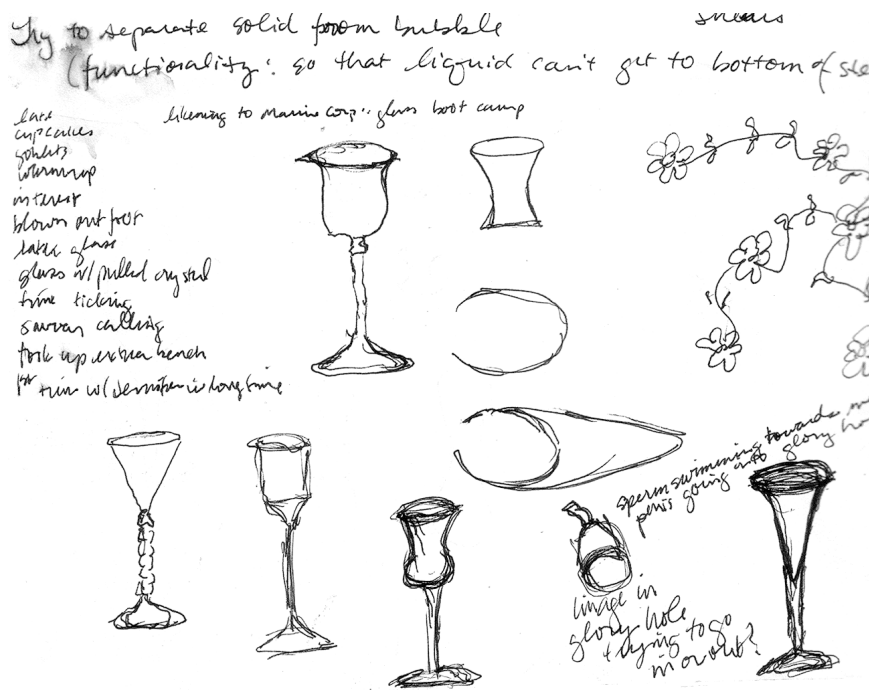 Try to separate solid from bubble
(functionality: so that liquid can't get to bottom of ste
likening to marine corp: glass boot camp
late
cupcakes
goblets
warmup
interest
blown out foot
glass
glass w/ pulled crystal
time ticking
calling
took up extra bench
1st time w/ Jennifer in long time
sperm swimming towards
penis going into glory ho
image in
glory hole
trying to go
in or out?